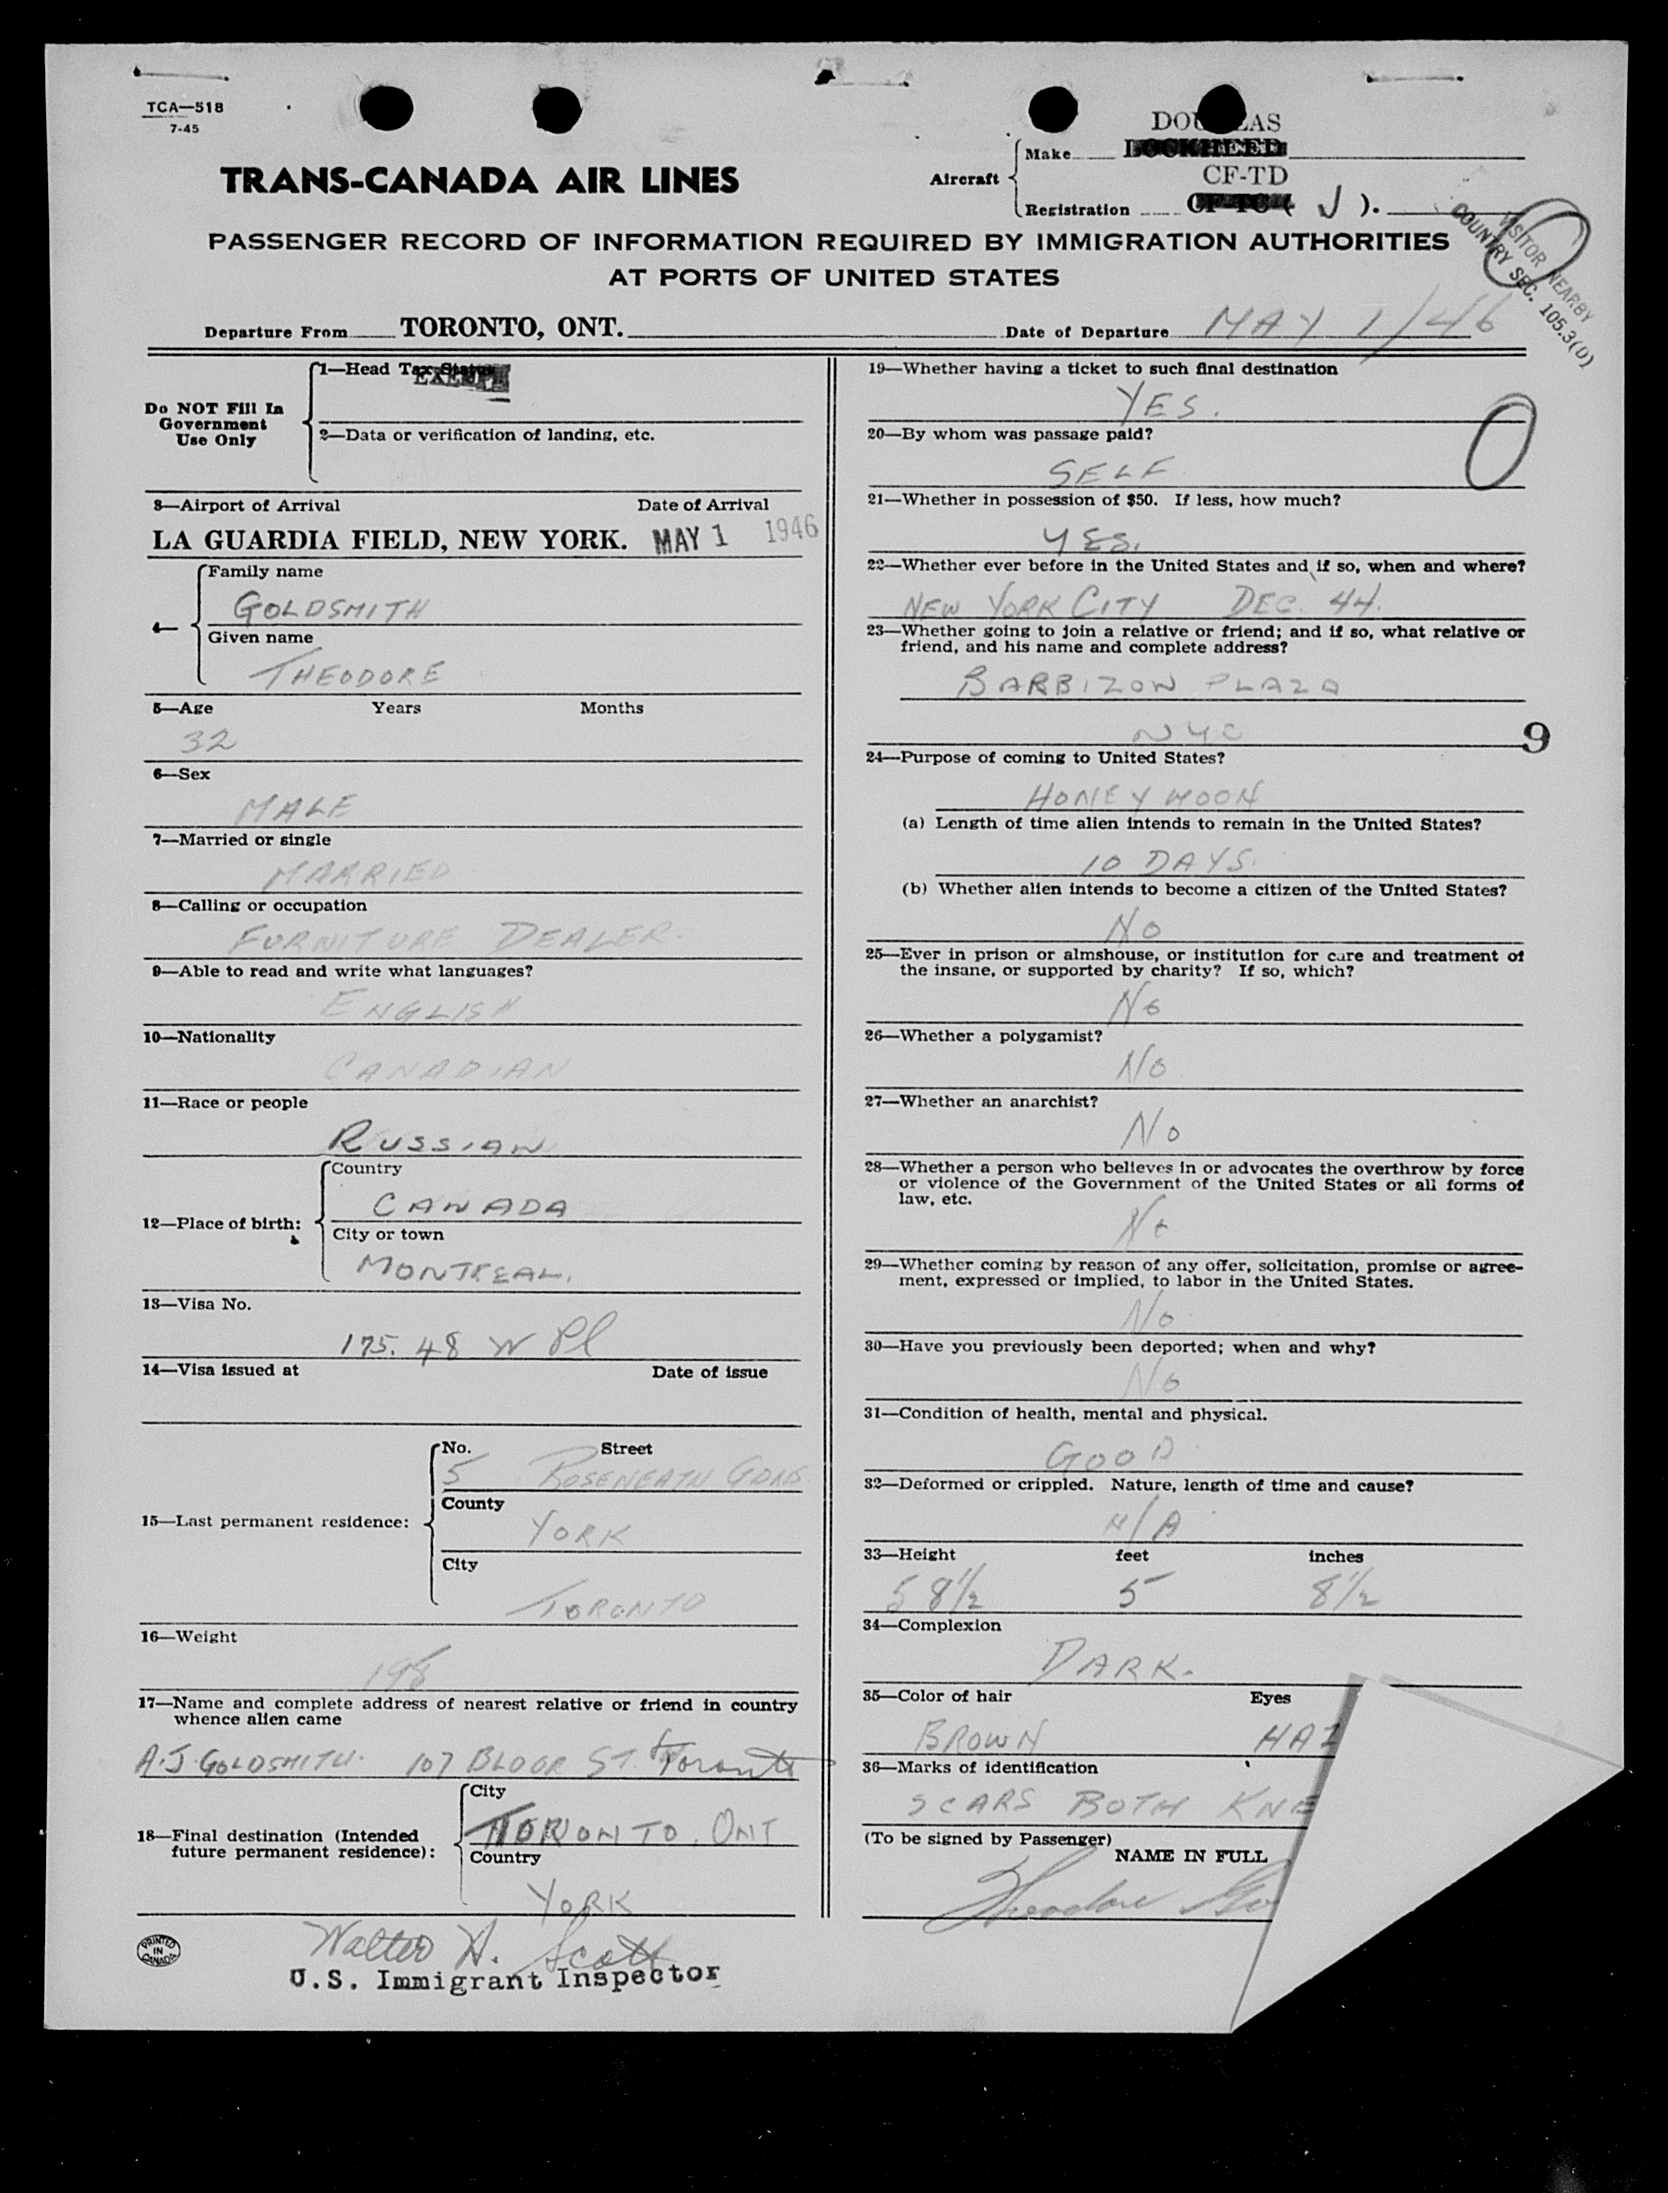 TCA—518
7-45
DOUGLAS
Aircraft
Make LOCKHEED
CF-TD
Registration CF-TC ( J ).
TRANS-CANADA AIR LINES
PASSENGER RECORD OF INFORMATION REQUIRED BY IMMIGRATION AUTHORITIES
AT PORTS OF UNITED STATES
VISITOR NEARBY
COUNTRY SEC. 105.3(D)
Departure From TORONTO, ONT. Date of Departure MAY 1/46
Do NOT Fill In
Government
Use Only
1—Head Tax Status
EXEMPT
2—Data or verification of landing, etc.
3—Airport of Arrival Date of Arrival
LA GUARDIA FIELD, NEW YORK. MAY 1 1946
4—
Family name
GOLDSMITH
Given name
THEODORE
5—Age Years Months
32
6—Sex
MALE
7—Married or single
MARRIED
8—Calling or occupation
FURNITURE DEALER.
9—Able to read and write what languages?
ENGLISH
10—Nationality
CANADIAN
11—Race or people
RUSSIAN
12—Place of birth:
Country
CANADA
City or town
MONTREAL.
13—Visa No.
175.48 W Pl
14—Visa issued at Date of issue
15—Last permanent residence:
No. Street
5 ROSENEATH GDNS
County
YORK
City
TORONTO
16—Weight
198
17—Name and complete address of nearest relative or friend in country
whence alien came
A.J. GOLDSMITH. 107 BLOOR ST. Toronto
18—Final destination (Intended
future permanent residence):
City
TORONTO, ONT
Country
YORK
PRINTED
IN
CANADA
Walter H. Scott
U.S. Immigrant Inspector
19—Whether having a ticket to such final destination
YES.
20—By whom was passage paid?
SELF
21—Whether in possession of $50. If less, how much?
YES.
22—Whether ever before in the United States and if so, when and where?
NEW YORK CITY DEC. 44.
23—Whether going to join a relative or friend; and if so, what relative or
friend, and his name and complete address?
BARBIZON PLAZA
NYC
9
24—Purpose of coming to United States?
HONEYMOON
(a) Length of time alien intends to remain in the United States?
10 DAYS.
(b) Whether alien intends to become a citizen of the United States?
NO
25—Ever in prison or almshouse, or institution for care and treatment of
the insane, or supported by charity? If so, which?
NO
26—Whether a polygamist?
NO
27—Whether an anarchist?
NO
28—Whether a person who believes in or advocates the overthrow by force
or violence of the Government of the United States or all forms of
law, etc.
NO
29—Whether coming by reason of any offer, solicitation, promise or agree-
ment, expressed or implied, to labor in the United States.
NO
30—Have you previously been deported; when and why?
NO
31—Condition of health, mental and physical.
GOOD
32—Deformed or crippled. Nature, length of time and cause?
N/A
33—Height feet inches
5 8½ 5 8½
34—Complexion
DARK.
35—Color of hair Eyes
BROWN HAZ
36—Marks of identification
SCARS BOTH KNE
(To be signed by Passenger)
NAME IN FULL
Theodore Go